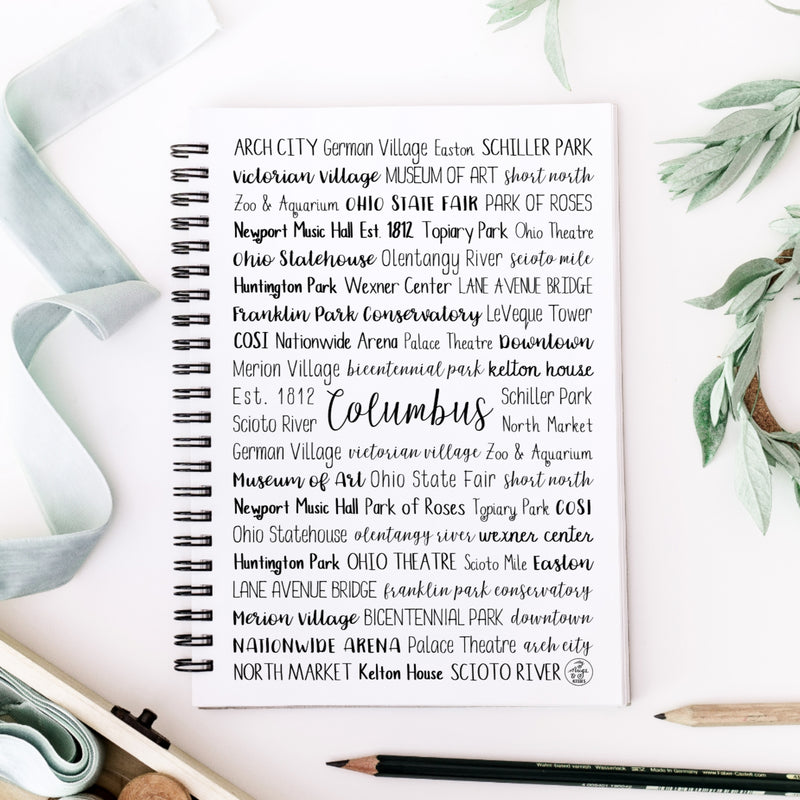 ARCH CITY German Village Easton SCHILLER PARK
victorian village MUSEUM OF ART short north
Zoo & Aquarium OHIO STATE FAIR PARK OF ROSES
Newport Music Hall Est. 1812 Topiary Park Ohio Theatre
Ohio Statehouse Olentangy River scioto mile
Huntington Park Wexner Center LANE AVENUE BRIDGE
Franklin Park Conservatory LeVeque Tower
COSI Nationwide Arena Palace Theatre Downtown
Merion Village bicentennial park kelton house
Est. 1812 Columbus Schiller Park
Scioto River North Market
German Village victorian village Zoo & Aquarium
Museum of Art Ohio State Fair short north
Newport Music Hall Park of Roses Topiary Park COSI
Ohio Statehouse olentangy river wexner center
Huntington Park OHIO THEATRE Scioto Mile Easton
LANE AVENUE BRIDGE franklin park conservatory
Merion Village BICENTENNIAL PARK downtown
NATIONWIDE ARENA Palace Theatre arch city
NORTH MARKET Kelton House SCIOTO RIVER
Made in Germany www.Faber-Castell.com